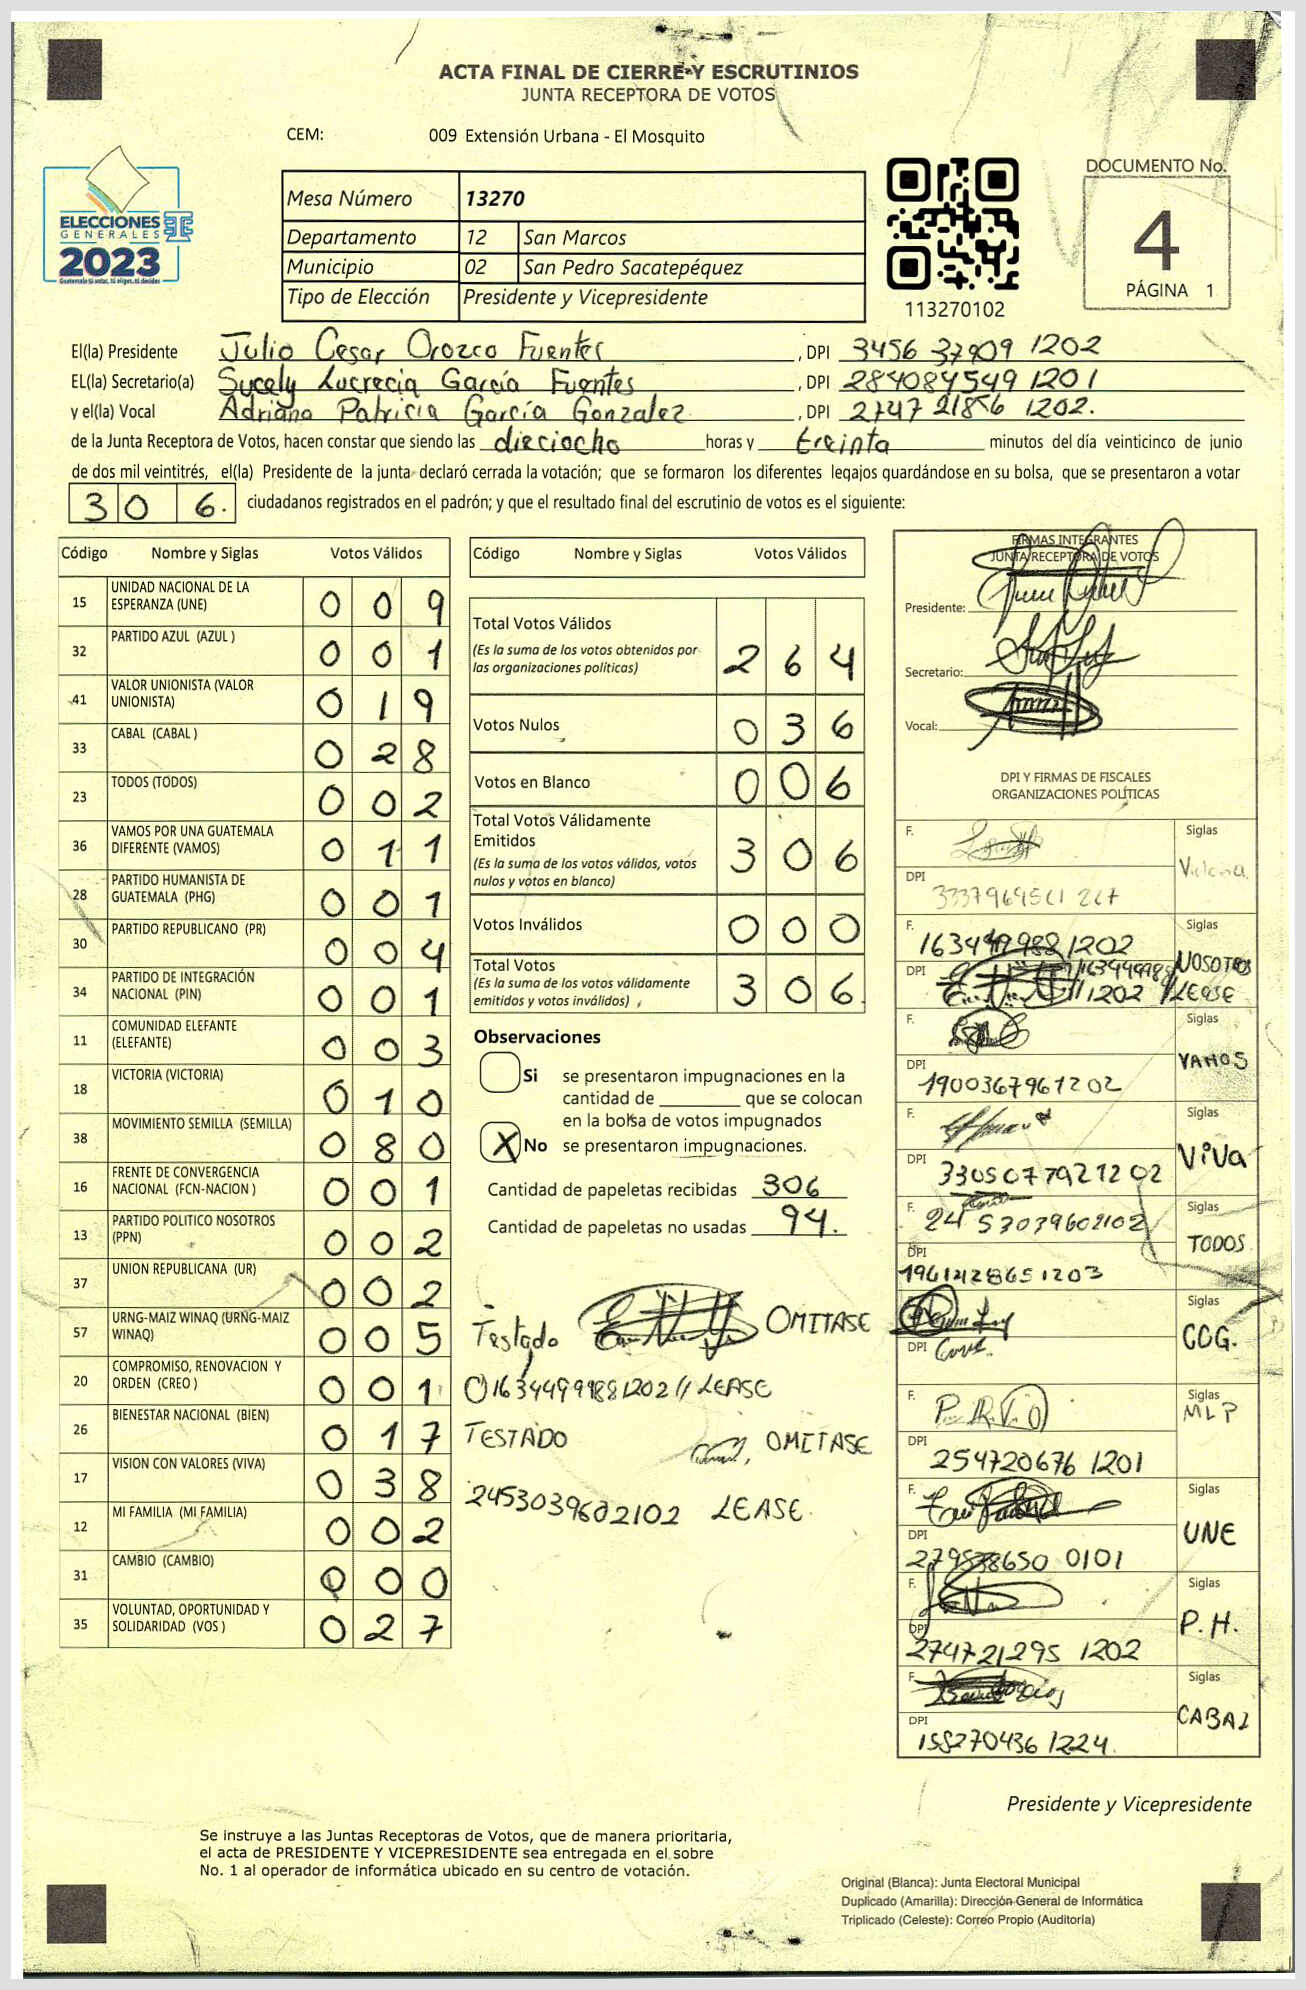 ACTA FINAL DE CIERRE Y ESCRUTINIOS
JUNTA RECEPTORA DE VOTOS
CEM: 009 Extensión Urbana - El Mosquito
ELECCIONES
GENERALES
2023
Guatemala tú votas, tú eliges, tú decides
Mesa Número 13270
Departamento 12 San Marcos
Municipio 02 San Pedro Sacatepéquez
Tipo de Elección Presidente y Vicepresidente
113270102
DOCUMENTO No.
4
PÁGINA 1
El(la) Presidente Julio Cesar Orozco Fuentes, DPI 3456 37909 1202
EL(la) Secretario(a) Sucely Lucrecia García Fuentes, DPI 284084549 1201
y el(la) Vocal Adriana Patricia García Gonzalez, DPI 2747 21856 1202.
de la Junta Receptora de Votos, hacen constar que siendo las dieciocho horas y treinta minutos del día veinticinco de junio
de dos mil veintitrés, el(la) Presidente de la junta declaró cerrada la votación; que se formaron los diferentes legajos guardándose en su bolsa, que se presentaron a votar
306. ciudadanos registrados en el padrón; y que el resultado final del escrutinio de votos es el siguiente:
Código Nombre y Siglas Votos Válidos
15 UNIDAD NACIONAL DE LA ESPERANZA (UNE) 0 0 9
32 PARTIDO AZUL (AZUL ) 0 0 1
41 VALOR UNIONISTA (VALOR UNIONISTA) 0 1 9
33 CABAL (CABAL ) 0 2 8
23 TODOS (TODOS) 0 0 2
36 VAMOS POR UNA GUATEMALA DIFERENTE (VAMOS) 0 1 1
28 PARTIDO HUMANISTA DE GUATEMALA (PHG) 0 0 1
30 PARTIDO REPUBLICANO (PR) 0 0 4
34 PARTIDO DE INTEGRACIÓN NACIONAL (PIN) 0 0 1
11 COMUNIDAD ELEFANTE (ELEFANTE) 0 0 3
18 VICTORIA (VICTORIA) 0 1 0
38 MOVIMIENTO SEMILLA (SEMILLA) 0 8 0
16 FRENTE DE CONVERGENCIA NACIONAL (FCN-NACION ) 0 0 1
13 PARTIDO POLITICO NOSOTROS (PPN) 0 0 2
37 UNION REPUBLICANA (UR) 0 0 2
57 URNG-MAIZ WINAQ (URNG-MAIZ WINAQ) 0 0 5
20 COMPROMISO, RENOVACION Y ORDEN (CREO ) 0 0 1
26 BIENESTAR NACIONAL (BIEN) 0 1 7
17 VISION CON VALORES (VIVA) 0 3 8
12 MI FAMILIA (MI FAMILIA) 0 0 2
31 CAMBIO (CAMBIO) 0 0 0
35 VOLUNTAD, OPORTUNIDAD Y SOLIDARIDAD (VOS ) 0 2 7
Código Nombre y Siglas Votos Válidos
Total Votos Válidos 2 6 4
(Es la suma de los votos obtenidos por
las organizaciones políticas)
Votos Nulos 0 3 6
Votos en Blanco 0 0 6
Total Votos Válidamente
Emitidos 3 0 6
(Es la suma de los votos válidos, votos
nulos y votos en blanco)
Votos Inválidos 0 0 0
Total Votos
(Es la suma de los votos válidamente
emitidos y votos inválidos) 3 0 6.
Observaciones
Si se presentaron impugnaciones en la
cantidad de ________ que se colocan
en la bolsa de votos impugnados
X No se presentaron impugnaciones.
Cantidad de papeletas recibidas 306
Cantidad de papeletas no usadas 94.
Testado OMITASE
01634499881202 // LEASE
TESTADO OMITASE
2453039602102 LEASE.
FIRMAS INTEGRANTES
JUNTA RECEPTORA DE VOTOS
Presidente:
Secretario:
Vocal:
DPI Y FIRMAS DE FISCALES
ORGANIZACIONES POLÍTICAS
F. Siglas Victoria
DPI
F. 163449988 1202 Siglas NOSOTROS
DPI 163449988 1202 // LEASE
F. Siglas VAMOS
DPI 1900367961202
F. Siglas VIVA
DPI 3305077921202
F. 2453039602102 Siglas TODOS
DPI 1961428651203
F. Siglas
DPI
F. Siglas MLP
DPI 254720676 1201
F. Siglas UNE
DPI 279838650 0101
F. Siglas P.H.
DPI 274721295 1202
F. Siglas CABAL
DPI 158270436 1224.
Presidente y Vicepresidente
Se instruye a las Juntas Receptoras de Votos, que de manera prioritaria,
el acta de PRESIDENTE Y VICEPRESIDENTE sea entregada en el sobre
No. 1 al operador de informática ubicado en su centro de votación.
Original (Blanca): Junta Electoral Municipal
Duplicado (Amarilla): Dirección General de Informática
Triplicado (Celeste): Correo Propio (Auditoría)